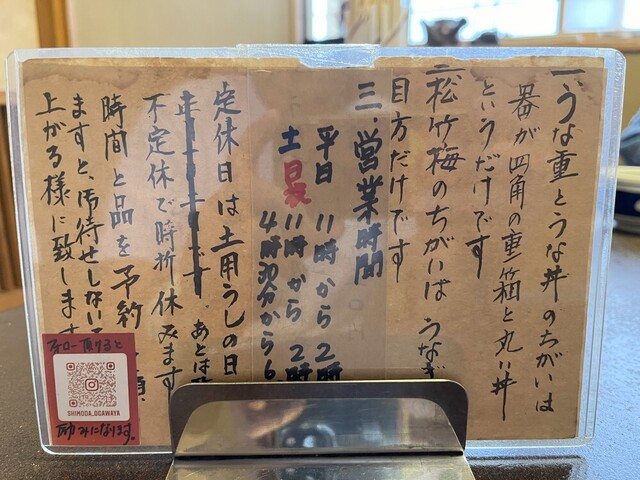 一、うな重とうな丼のちがいは
器が四角の重箱と丸い丼
というだけです
二、松竹梅のちがいは うなぎ
目方だけです
三、営業時間
平日 11時から 2時
土日 11時から 2時
4時30分から6
定休日は土用うしの日
です、あとは
不定休で時折休みます
時間と品を予約
ますと、お待せしない
上がる様に致します
フォロー頂けると
SHIMODA_OGAWAYA
励みになります。